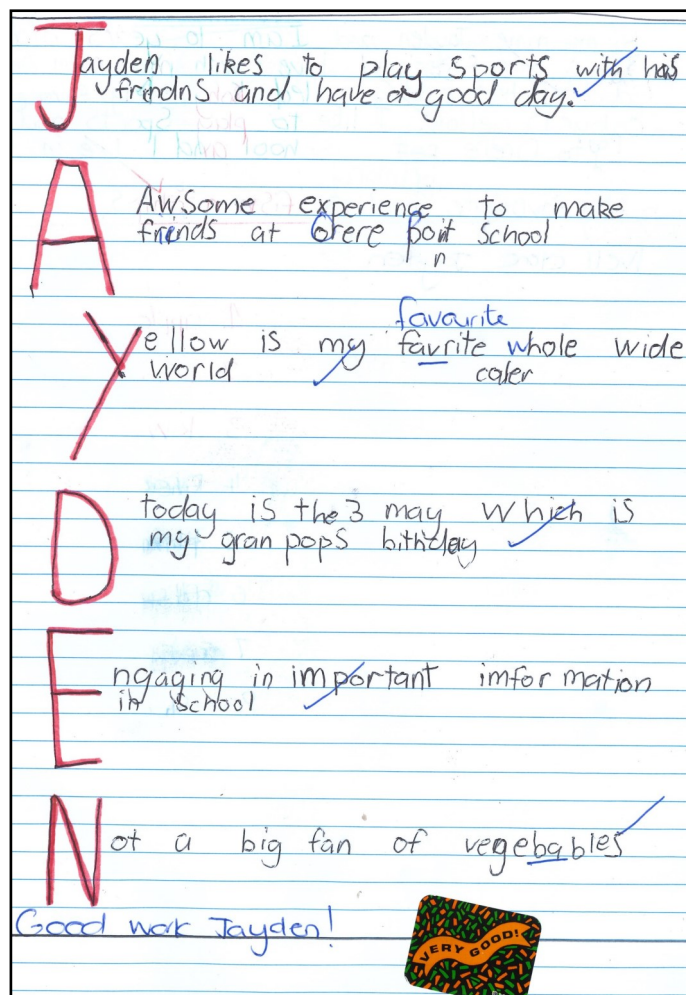 Jayden likes to play sports with his
frindnS and have a good day.
A
AwSome experience to make
frinds at Orere Point School
n
favourite
Yellow is my favrite whole wide
world caler
D
today is the 3 may Which is
my gran pops bithday
Engaging in important imformation
in School
Not a big fan of vegebables
Good work Jayden!
VERY GOOD!